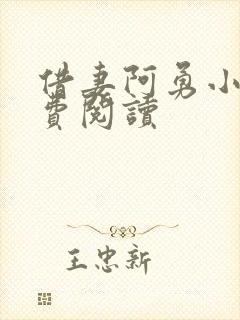 借妻阿勇小
費閱讀
王忠新